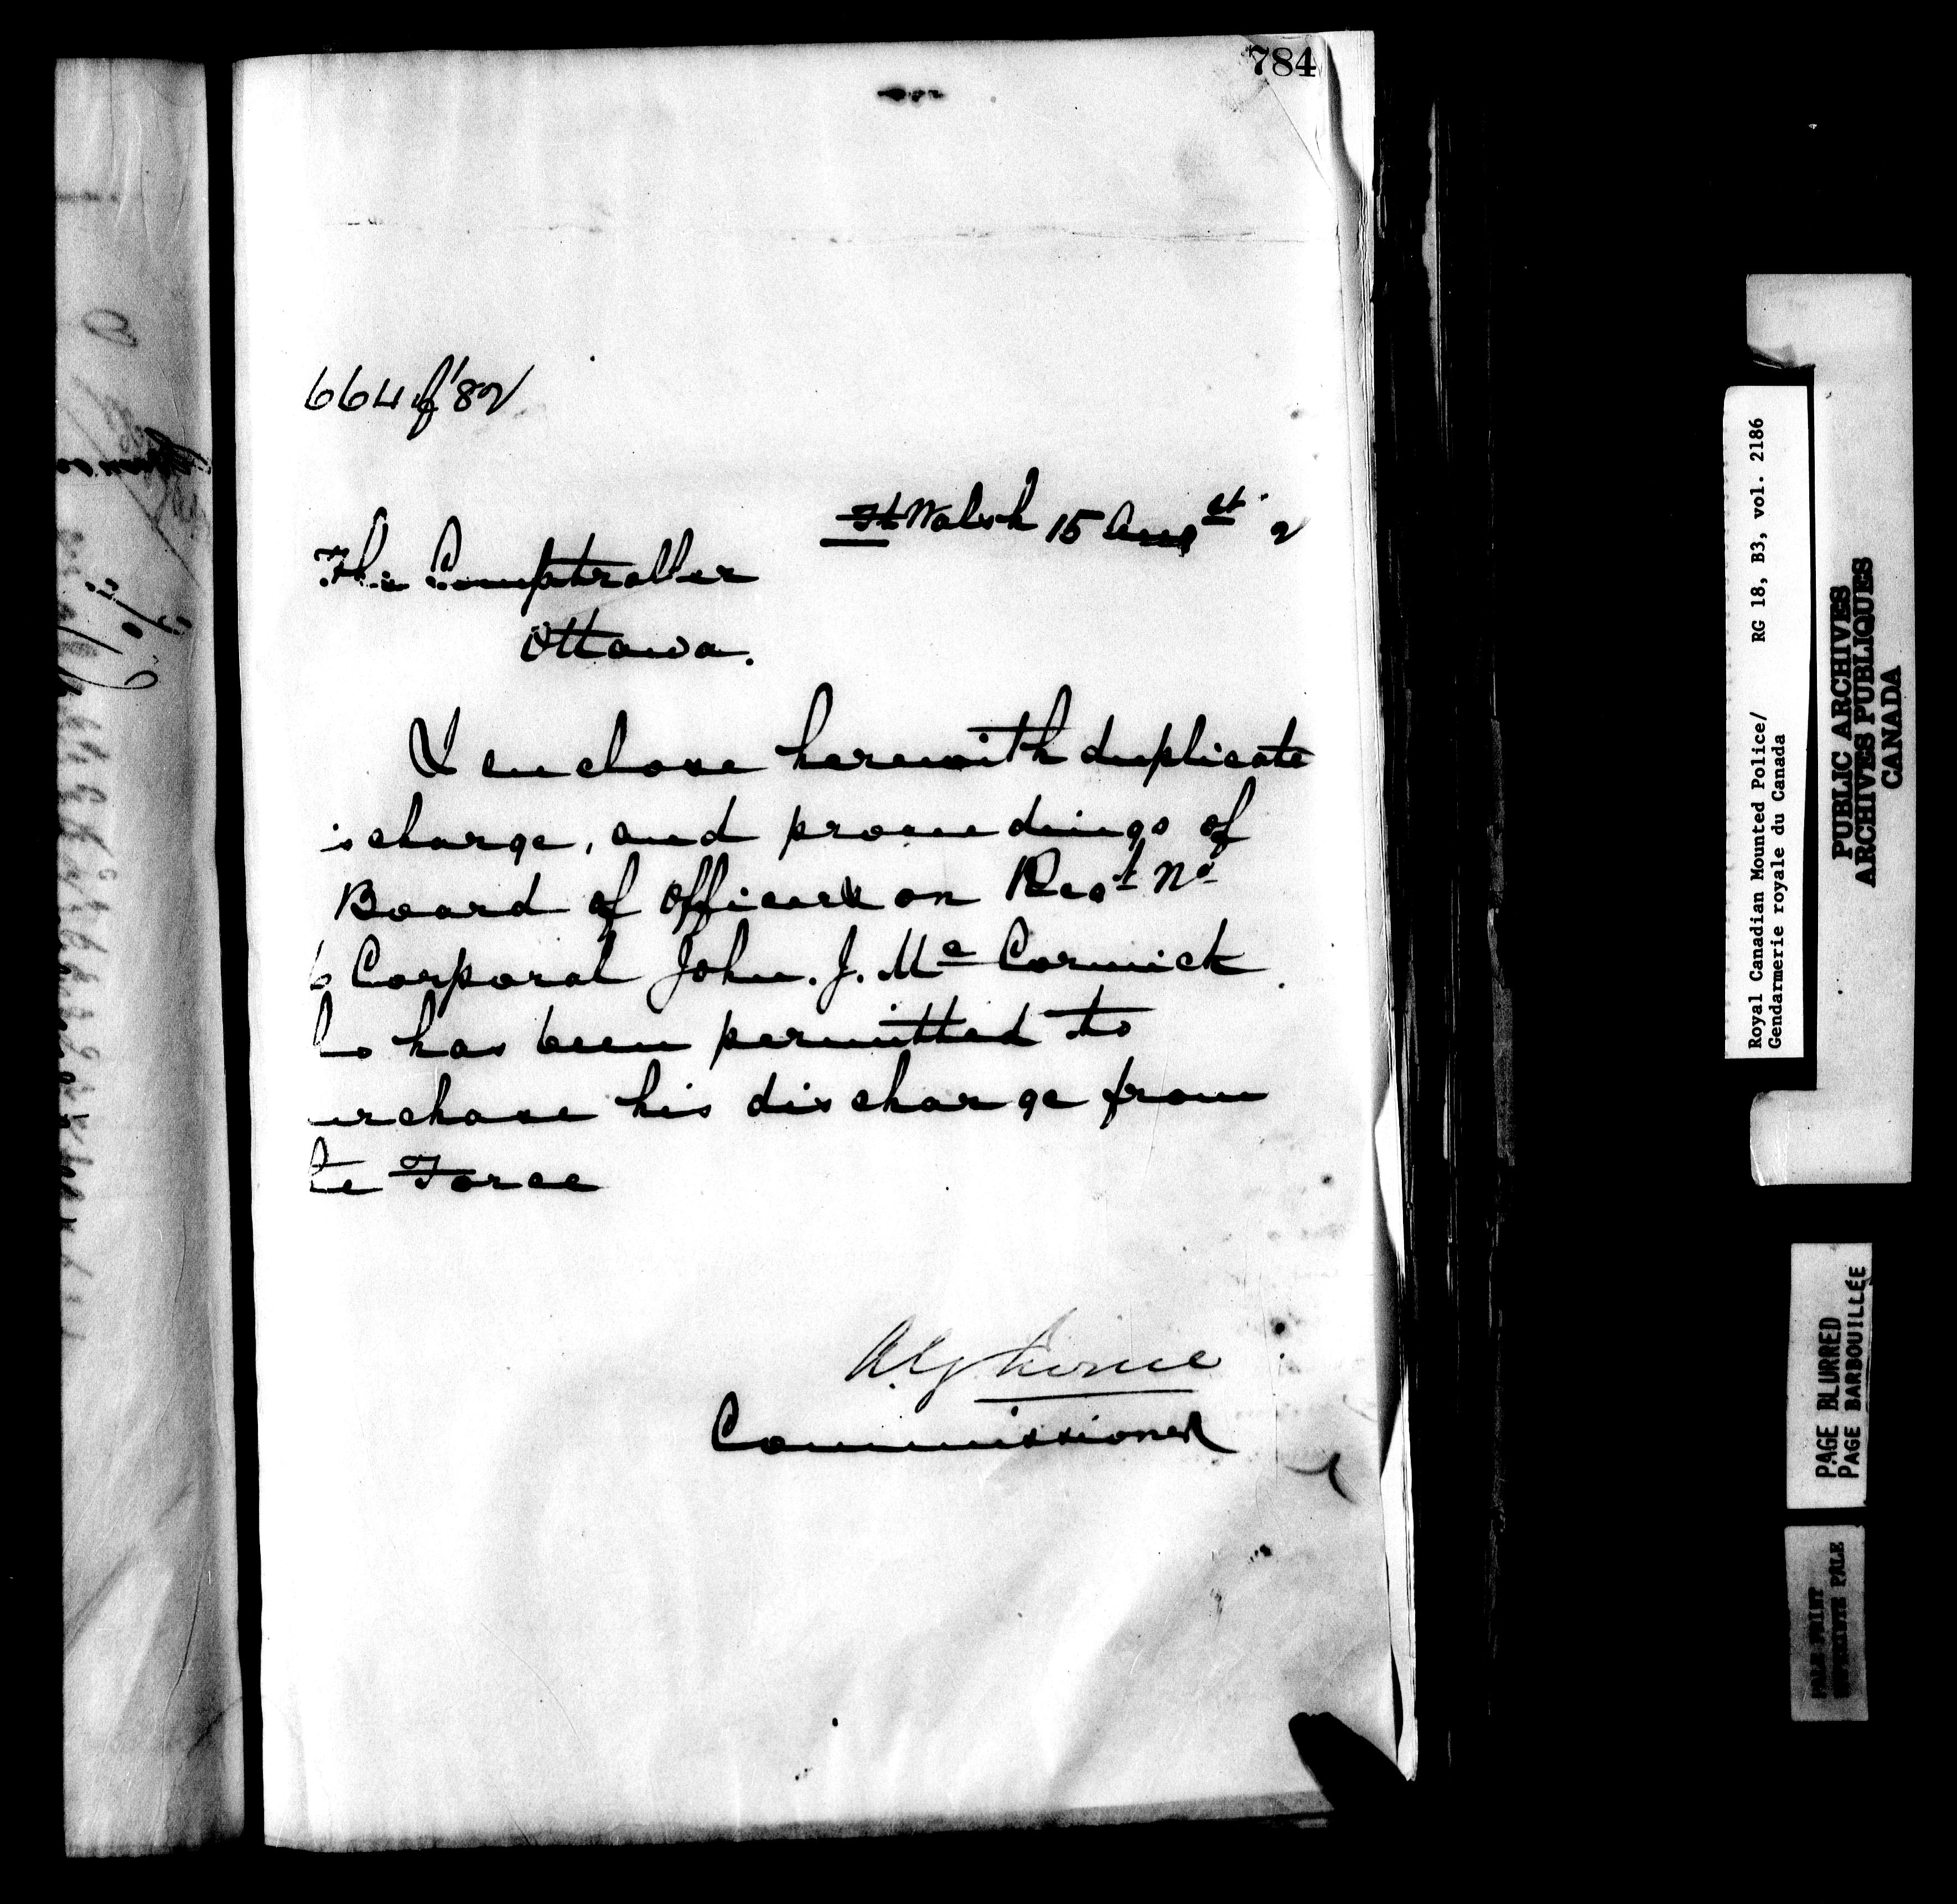 784
664 of '82
Ft Walsh 15 Augst 2
The Comptroller
Ottawa.
I enclose herewith duplicate
ischarge, and proceedings of
Board of Officers on Regt No
6 Corporal John. J. Mc Cormick
ho has been permitted to
urchase his discharge from
he Force
A.G. Irvine
Commissioner
Royal Canadian Mounted Police/ RG 18, B3, vol. 2186
Gendarmerie royale du Canada
PUBLIC ARCHIVES
ARCHIVES PUBLIQUES
CANADA
PAGE BLURRED
PAGE BARBOUILLÉE
PALE PRINT
PALE